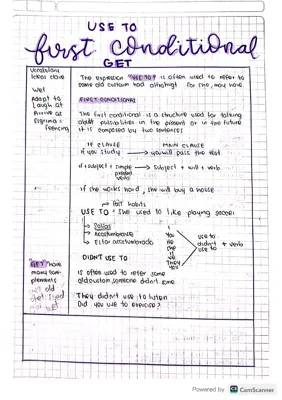 USE TO
first conditional
GET
Vocabulary
Ideas clave
wet
Adapt to
Laugh at
Arrive at
The expression "USE TO" is often used to refer to
some old custom had although for she, may have.
FIRST CONDITIONAL
The first conditional is a structure used for talking
about possibilities in the present or in the future
it is composed by two sentences
IF CLAUSE MAIN CLAUSE
if you study → you will pass the test
if + subject + simple present verb → subject + will + verb
if she works hard, she will buy a house
past habits
USE TO • she used to like playing soccer
I
You
He
She
it
We
They
You
use to
didn't + verb
use to
DIDN'T USE TO
"GET" have
many com-
plements
is often used to refer some
old custom, someone didn't some
They didn't use to listen
Did you use to exercise?
Powered by CS CamScanner